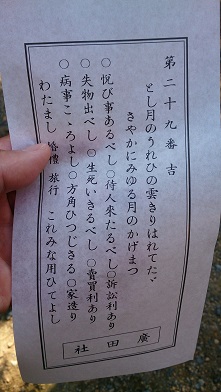 第二十九番 吉
とし月のうれひの雲きりはれてたゞ
さやかにみゆる月のかげまつ
○悦び事あるべし○待人来たるべし○訴訟利あり
○失物出べし○生死いきるべし○賣買利あり
○病事こゝろよし○方角ひつじさる○家造り
わたまし 婚禮 旅行 これみな用ひてよし
廣田社